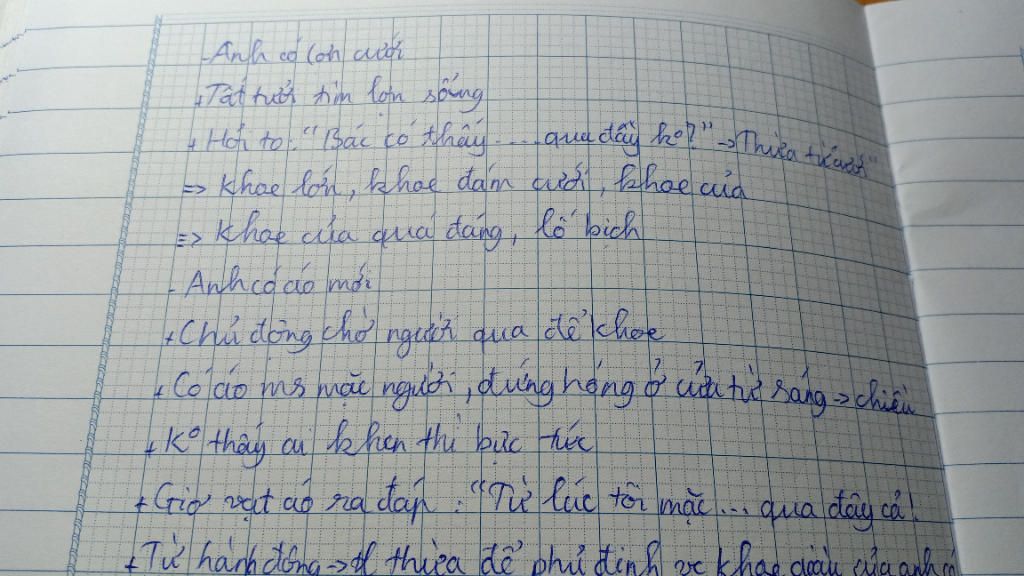 - Anh có lợn cưới
+ Tất tưởi tìm lợn sống
+ Hỏi to: "Bác có thấy .... qua đây ko?" → Thừa từ "cưới"
=> Khoe lớn, khoe đám cưới, khoe của
=> Khoe của quá đáng, lố bịch
- Anh có áo mới
+ Chủ động chờ người qua để khoe
+ Có áo ms mặc người, đứng hóng ở cửa từ sáng → chiều
+ Ko thấy ai khen thì bực tức
+ Giơ vạt áo ra đáp: "Từ lúc tôi mặc... qua đây cả!
+ Từ hành động → thừa để phủ định vc khoe của anh có